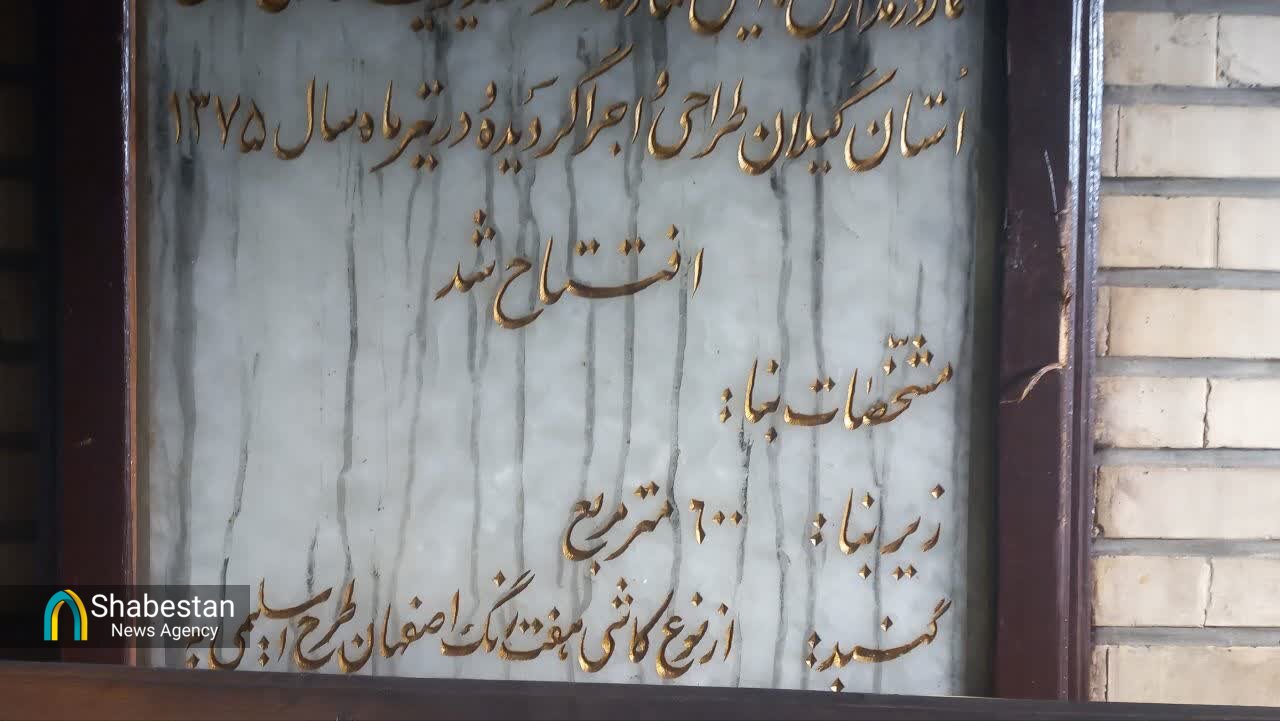 استان گیلان طراحی و اجرا گردیده و در تیر ماه سال ۱۳۷۵
افتتاح شد
مشخصات بنا :
زیر بنا : ۶۰۰ متر مربع
گنبد : از نوع کاشی هفت رنگ اصفهان طرح اسلیمی به
Shabestan
News Agency